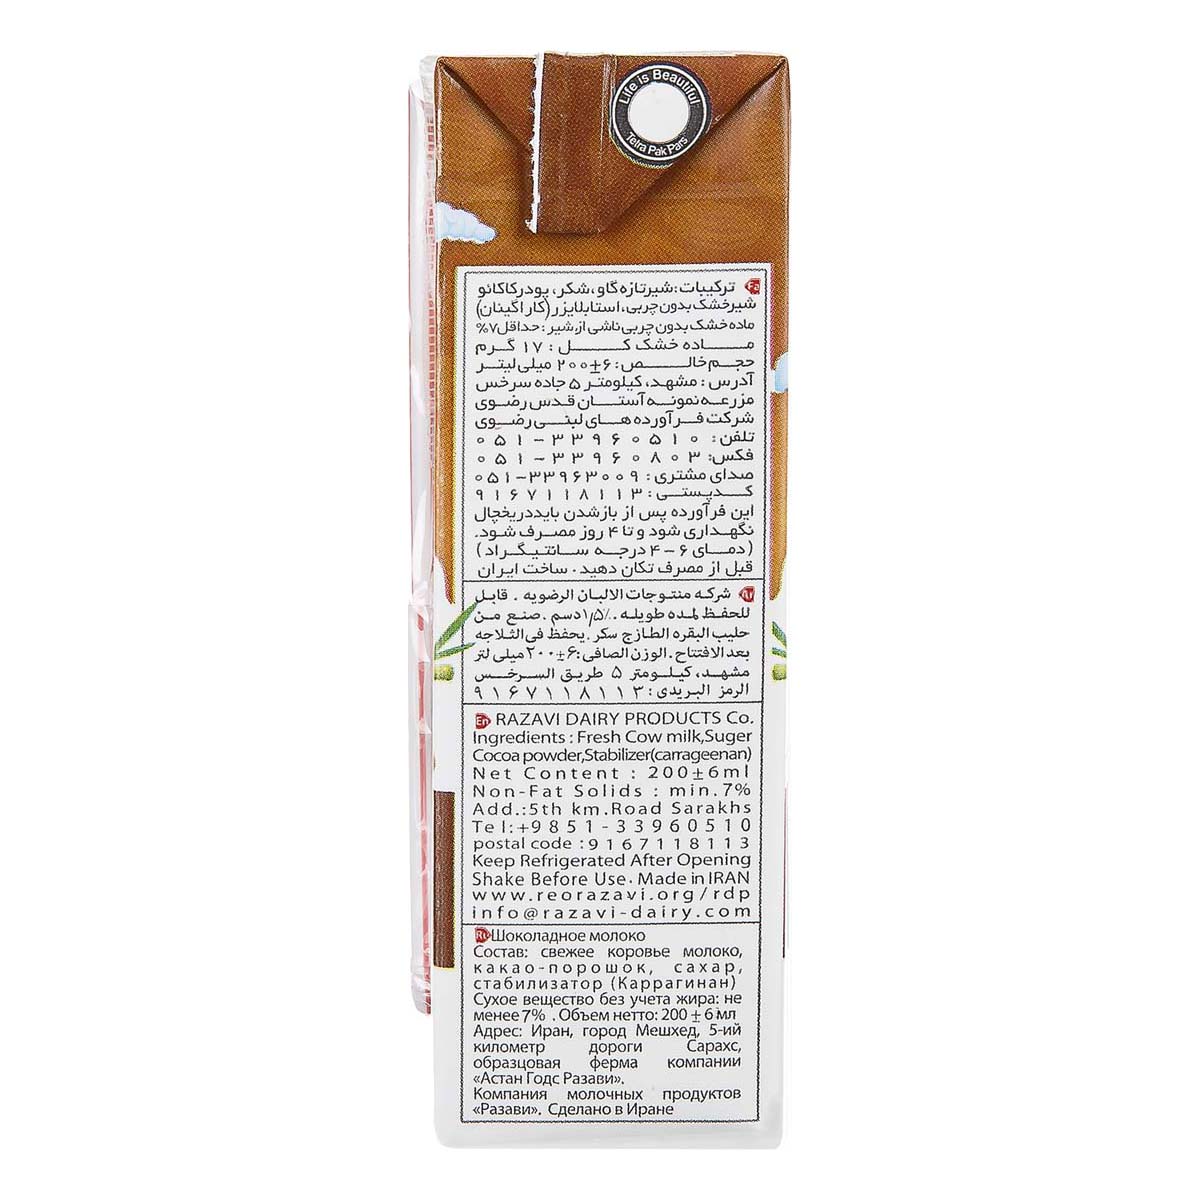 Life is Beautiful
Tetra Pak Pars
Fa ترکیبات: شیرتازه گاو، شکر، پودرکاکائو
شیرخشک بدون چربی، استابلایزر (کاراگینان)
ماده خشک بدون چربی ناشی از شیر: حداقل ۷%
مـــاده خشک کـــل: ۱۷ گـرم
حجـم خالـــص: ۲۰۰±۶ میلی لیتـر
آدرس: مشهد، کیلومتر ۵ جاده سرخس
مزرعـه نمونـه آستـــان قدس رضوی
شرکت فـرآورده هـای لبنـی رضـوی
تلفن: ۰۵۱-۳۳۹۶۰۵۱۰
فکس: ۰۵۱-۳۳۹۶۰۸۰۳
صدای مشتری: ۰۵۱-۳۳۹۶۳۰۰۹
کـدپستـی: ۹۱۶۷۱۱۸۱۱۳
این فرآورده پس از بازشدن باید دریخچال
نگهـداری شود و تا ۴ روز مصـرف شود.
(دمـای ۶-۴ درجـه سـانتیـگراد)
قبل از مصرف تکان دهید. ساخت ایران
Ar شرکه منتوجات الالبان الرضویه . قابـل
للحفظ لمده طویله. ۱٫۵٪ دسم . صنع من
حلیب البقره الطازج سکر. یحفظ فی الثلاجه
بعد الافتتاح. الوزن الصافی: ۶±۲۰۰ میلی لتر
مشهـد، کیلـومتر ۵ طریـق السـرخـس
الرمز البریدی: ۹۱۶۷۱۱۸۱۱۳
En RAZAVI DAIRY PRODUCTS Co.
Ingredients : Fresh Cow milk,Suger
Cocoa powder,Stabilizer(carrageenan)
Net Content : 200±6ml
Non-Fat Solids : min.7%
Add.:5th km.Road Sarakhs
Tel:+9851-33960510
postal code :9167118113
Keep Refrigerated After Opening
Shake Before Use. Made in IRAN
www.reorazavi.org/rdp
info@razavi-dairy.com
Ru Шоколадное молоко
Состав: свежее коровье молоко,
какао-порошок, сахар,
стабилизатор (Каррагинан)
Сухое вещество без учета жира: не
менее 7% . Объем нетто: 200 ± 6 мл
Адрес: Иран, город Мешхед, 5-ий
километр дороги Сарахс,
образцовая ферма компании
«Астан Годс Разави».
Компания молочных продуктов
«Разави». Сделано в Иране